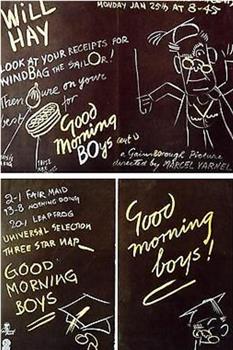 WILL
HAY
MONDAY JAN 25th AT 8-45
LOOK AT YOUR RECEIPTS FOR
WINDBAG THE SAILOR!
Then on your
best for
Good
Morning
BOys
a Gainsborough Picture
directed by MARCEL VARNEL
2-1 FAIR MAID
13-8 NOTHING DOING
20-1 LEAPFROG
UNIVERSAL SELECTION
THREE STAR NAP
GOOD
MORNING
BOYS
Good
morning
boys!